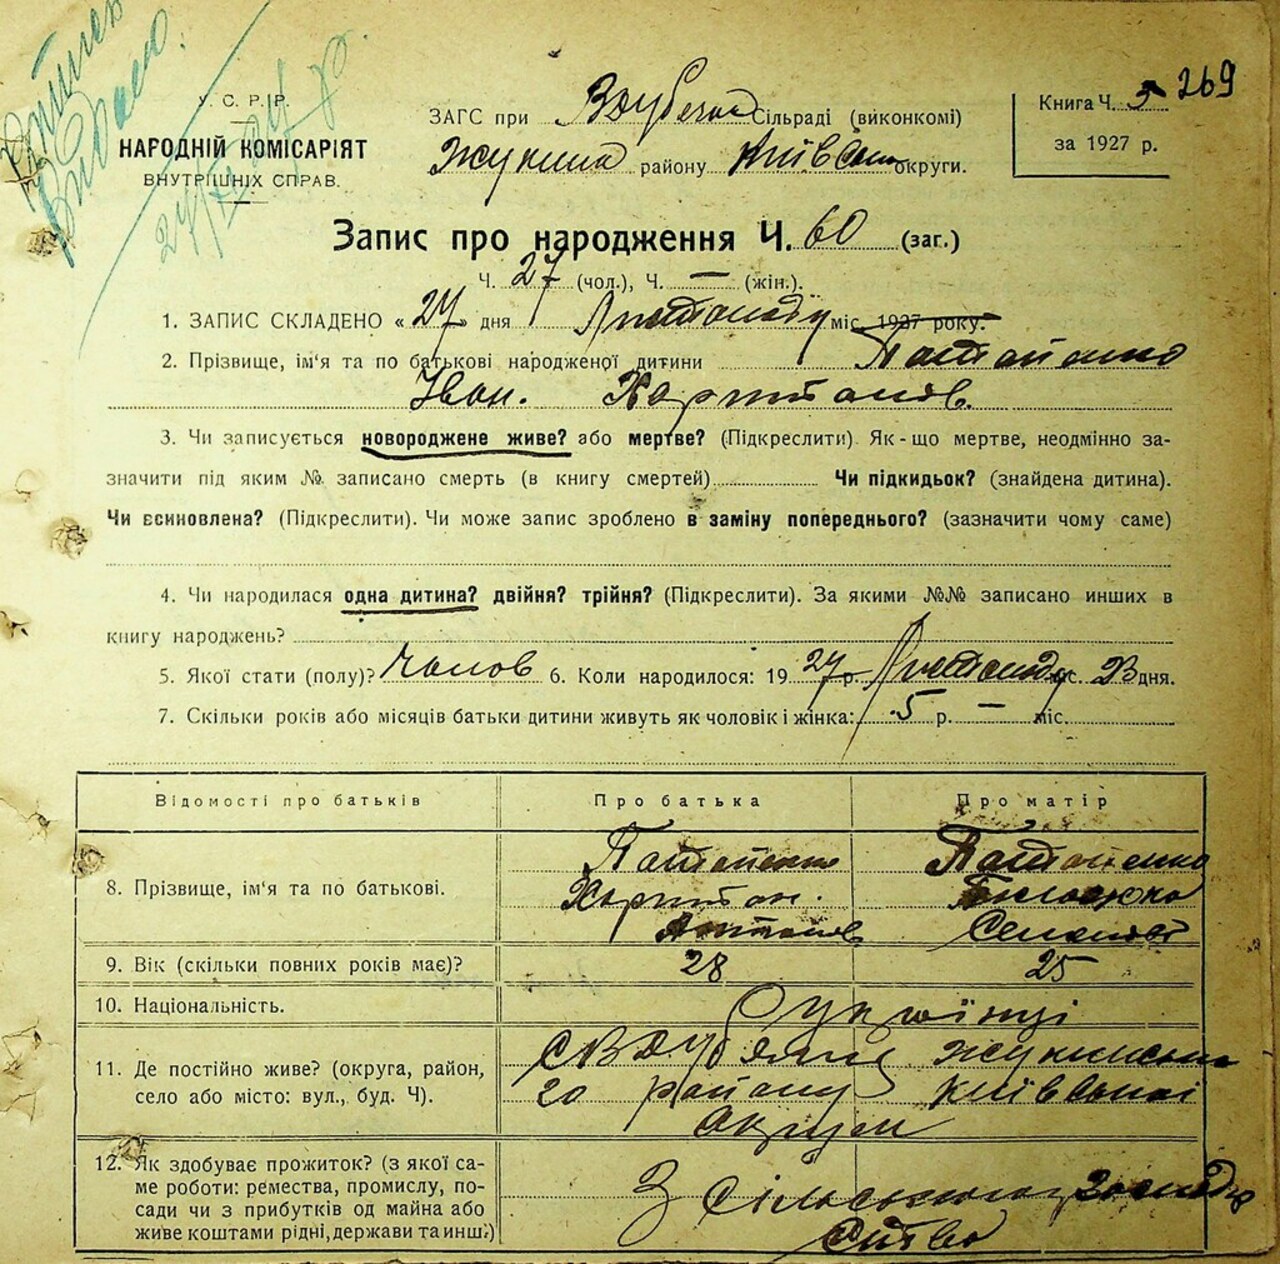 269
У. С. Р. Р.
НАРОДНІЙ КОМІСАРІЯТ
ВНУТРІШНІХ СПРАВ.
ЗАГС при Сільраді (виконкомі)
району Київської округи.
Книга Ч. 5
за 1927 р.
Запис про народження Ч. 60 (заг.)
Ч. 27 (чол.), Ч. — (жін.).
1. ЗАПИС СКЛАДЕНО « 27 » дня Листопаду міс. 1927 року.
2. Прізвище, ім'я та по батькові народженої дитини
Іван. Харитонов.
3. Чи записується новороджене живе? або мертве? (Підкреслити). Як-що мертве, неодмінно за-
значити під яким № записано смерть (в книгу смертей) Чи підкидьок? (знайдена дитина).
Чи всиновлена? (Підкреслити). Чи може запис зроблено в заміну попереднього? (зазначити чому саме)
4. Чи народилася одна дитина? двійня? трійня? (Підкреслити). За якими №№ записано инших в
книгу народжень?
5. Якої стати (полу)? Чолов 6. Коли народилося: 1927 р. Листопаду міс. 23 дня.
7. Скільки років або місяців батьки дитини живуть як чоловік і жінка: 5 р. — міс.
Відомості про батьків Про батька Про матір
8. Прізвище, ім'я та по батькові.
Харитон.
9. Вік (скільки повних років має)? 28 25
10. Національність. Українці
11. Де постійно живе? (округа, район,
село або місто: вул., буд. Ч).
району Київської
округи
12. Як здобуває прожиток? (з якої са-
ме роботи: ремества, промислу, по-
сади чи з прибутків од майна або
живе коштами рідні, держави та инш.)
З сільського господар
ства